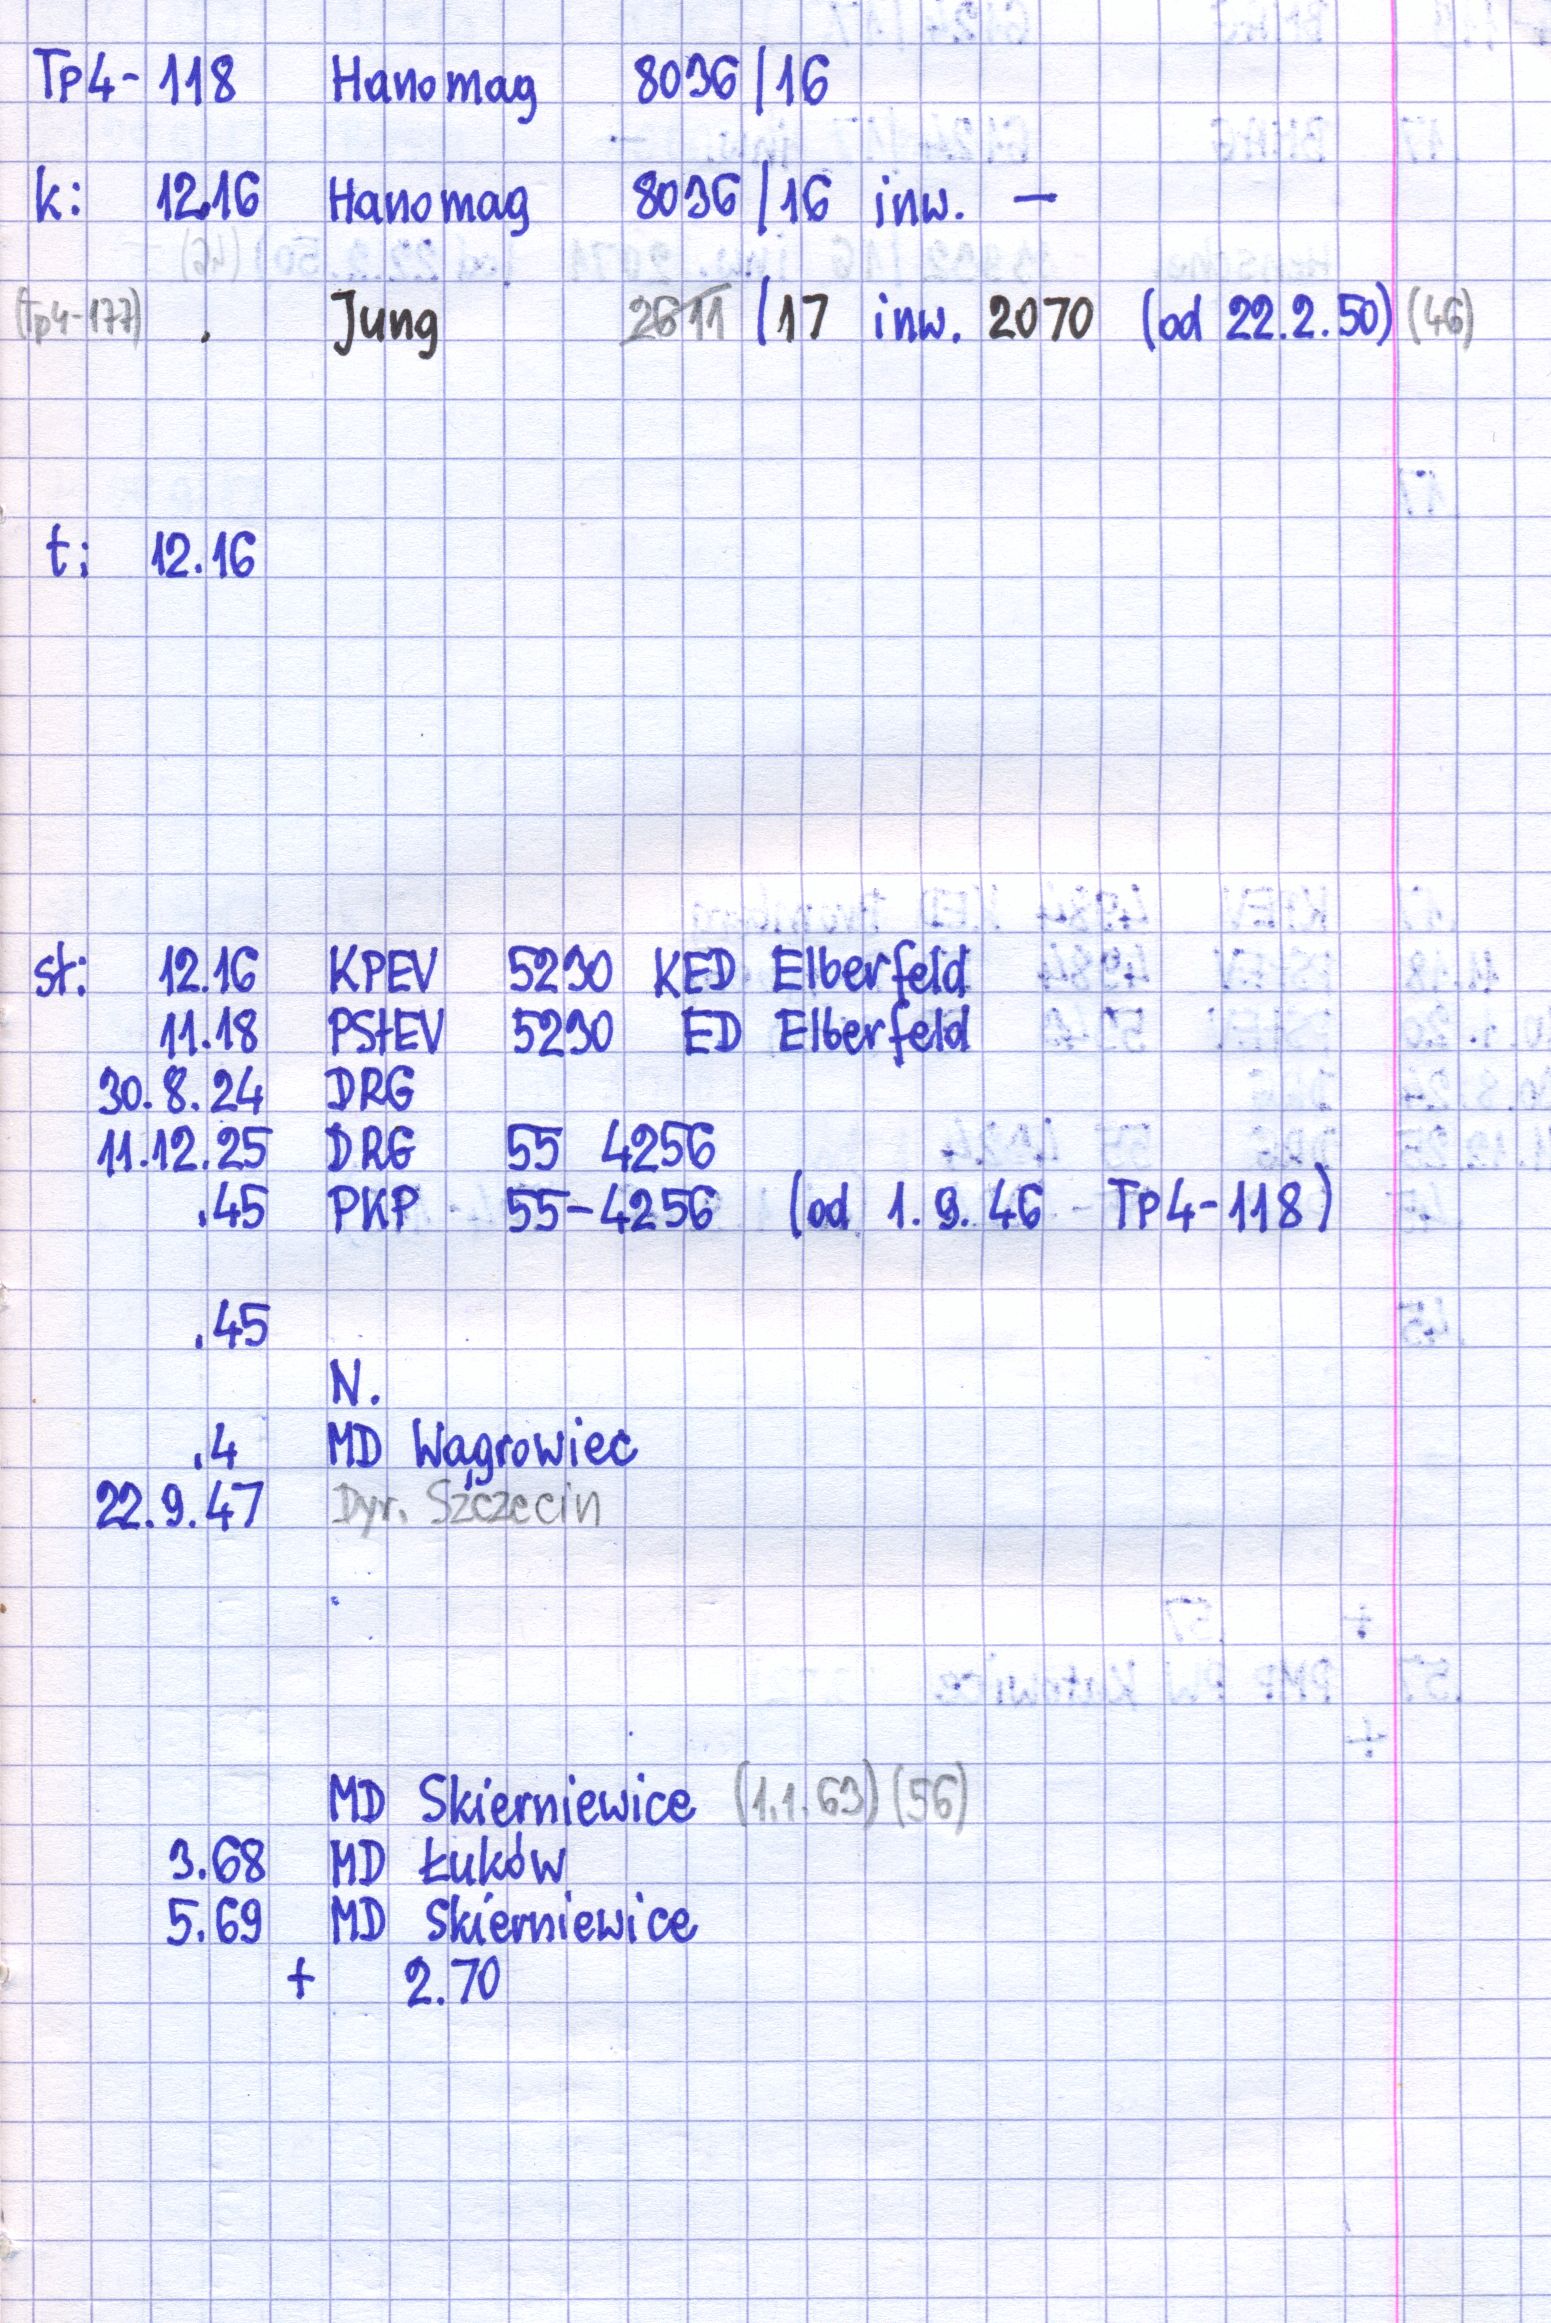 Tp4-118 Hanomag 8036/16
k: 12.16 Hanomag 8036/16 inw. —
(Tp4-177) . Jung 2611/17 inw. 2070 (od 22.2.50) (46)
t: 12.16
st: 12.16 KPEV 5230 KED Elberfeld
11.18 PStEV 5230 ED Elberfeld
30.8.24 DRG
11.12.25 DRG 55 4256
.45 PKP 55-4256 (od 1.9.46 Tp4-118)
.45
N.
.4 MD Wągrowiec
22.9.47 Dyr. Szczecin
MD Skierniewice (1.1.63) (56)
3.68 MD Łuków
5.69 MD Skierniewice
+ 2.70